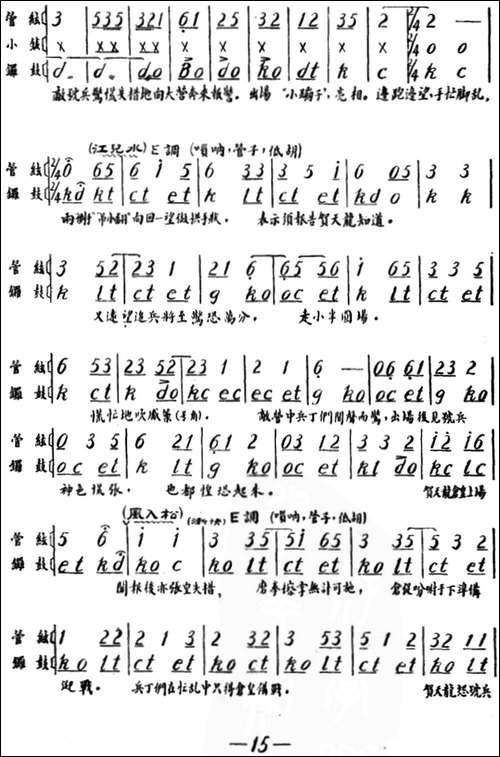 管絃 3 535 321 61 25 32 12 35 2 2/4 2 —
小鈸 x x x x x x x x x x x x 2/4 o o
鑼鼓 d. d. do Bo do ko dt k c 2/4 k c
敵號兵驚慌失措地向大營奔來報警。出場"小蹦子",亮相。邊跑邊望,手忙腳乱。
(江兒水)E調(嗩吶,管子,低胡)
管絃 2/4 0 65 6 i 5 6 33 3 5 i 6 05 3 3
鑼鼓 2/4 kd kt ct et k lt ct et kd o k k
向回一望做拱手狀, 表示須報告賀天龍知道。
管絃 3 52 23 1 21 6 65 56 i 65 3 3 5
鑼鼓 k lt ct et g ko oc et k lt ct et
又遠望追兵將至驚恐萬分, 走小半圓場。
管絃 6 53 23 52 23 1 2 1 6 — 06 61 23 2
鑼鼓 k ct k do kc ec ec et g ko oc et g ko
慌忙地吹 (号角)。 敵營中兵丁們聞聲而驚,出場後見號兵
管絃 0 3 5 6 21 61 2 03 12 3 3 2 i2 i6
鑼鼓 oc et k lt g ko oc et kl do kc lc
神色慌張, 也都惶恐起來。 賀天龍倉皇上場
(風入松) E調(嗩吶,管子,低胡)
管絃 5 6 i i 3 35 5i 65 3 35 5 3 2
鑼鼓 et kd ko c ko lt ct et ko lt ct et
聞報後亦張皇失措, 無計可施, 倉促吩咐手下準備
管絃 1 22 2 1 3 2 32 3 53 5 1 2 32 11
鑼鼓 ko lt ct et ko ct ko lt ct et ko lt
迎戰。 兵丁們在忙乱中只得倉皇備戰。 賀天龍怒號兵
—15—